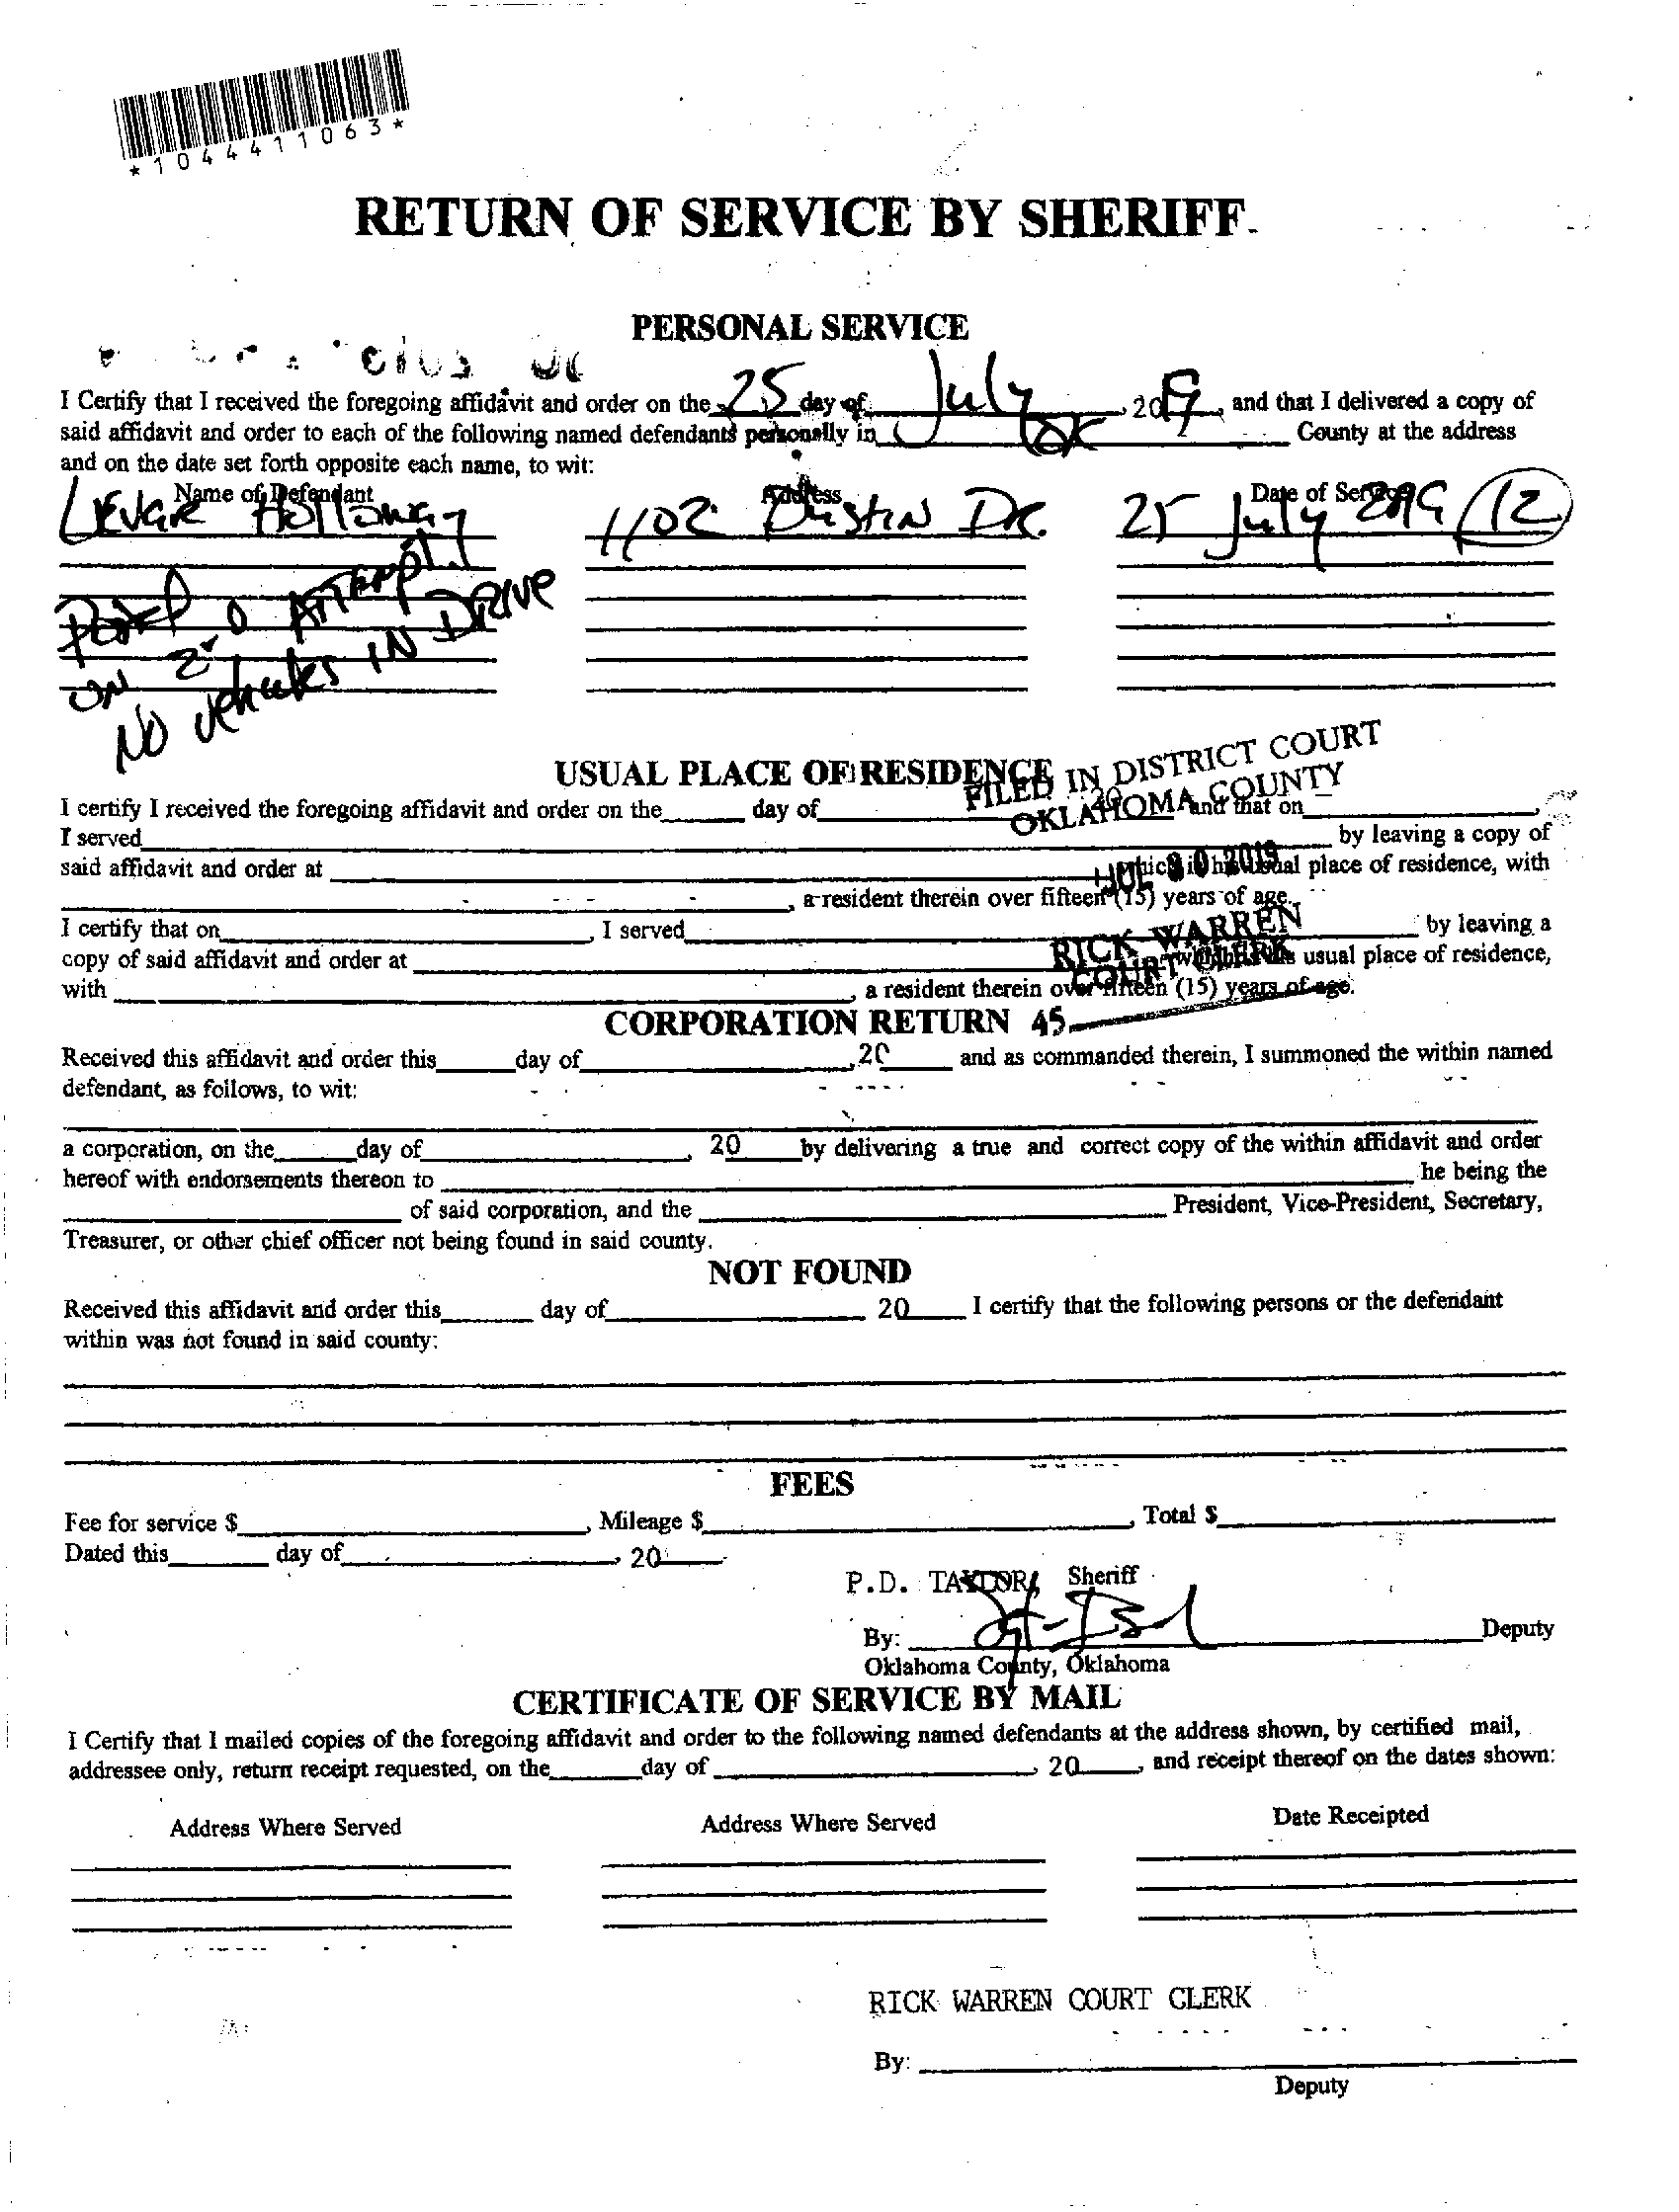 *1044411063*
RETURN OF SERVICE BY SHERIFF
PERSONAL SERVICE
I Certify that I received the foregoing affidavit and order on the 25 day of July, 2019, and that I delivered a copy of
said affidavit and order to each of the following named defendants personally in OK County at the address
and on the date set forth opposite each name, to wit:
Name of Defendant Address Date of Service
Levar Holloway 1102 Dustin Dr. 25 July 2019 (12)
Posted
on 2nd Attempt
No vehicles in Drive
USUAL PLACE OF RESIDENCE
FILED IN DISTRICT COURT
OKLAHOMA COUNTY
I certify I received the foregoing affidavit and order on the____ day of____ 20 and that on____,
I served____ by leaving a copy of
said affidavit and order at ____ which is his usual place of residence, with
JUL 30 2019
____, a resident therein over fifteen (15) years of age.
RICK WARREN
COURT CLERK
I certify that on____, I served____ by leaving a
copy of said affidavit and order at ____ which is his usual place of residence,
with ____, a resident therein over fifteen (15) years of age.
CORPORATION RETURN 45
Received this affidavit and order this____day of____,20____ and as commanded therein, I summoned the within named
defendant, as follows, to wit:
a corporation, on the____day of____, 20____by delivering a true and correct copy of the within affidavit and order
hereof with endorsements thereon to ____ he being the
____ of said corporation, and the ____ President, Vice-President, Secretary,
Treasurer, or other chief officer not being found in said county.
NOT FOUND
Received this affidavit and order this____ day of____ 20____ I certify that the following persons or the defendant
within was not found in said county:
FEES
Fee for service $____, Mileage $____, Total $____
Dated this____ day of____, 20____
P.D. TAYLOR, Sheriff
By: ____Deputy
Oklahoma County, Oklahoma
CERTIFICATE OF SERVICE BY MAIL
I Certify that I mailed copies of the foregoing affidavit and order to the following named defendants at the address shown, by certified mail,
addressee only, return receipt requested, on the____day of ____, 20____, and receipt thereof on the dates shown:
Address Where Served Address Where Served Date Receipted
RICK WARREN COURT CLERK
By: ____
Deputy